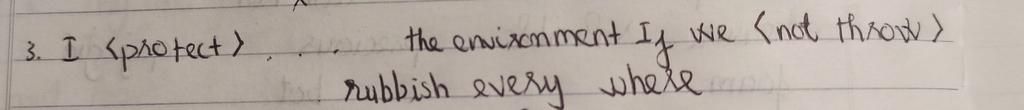 3. I <protect> . . . the environment If we <not throw>
rubbish every where